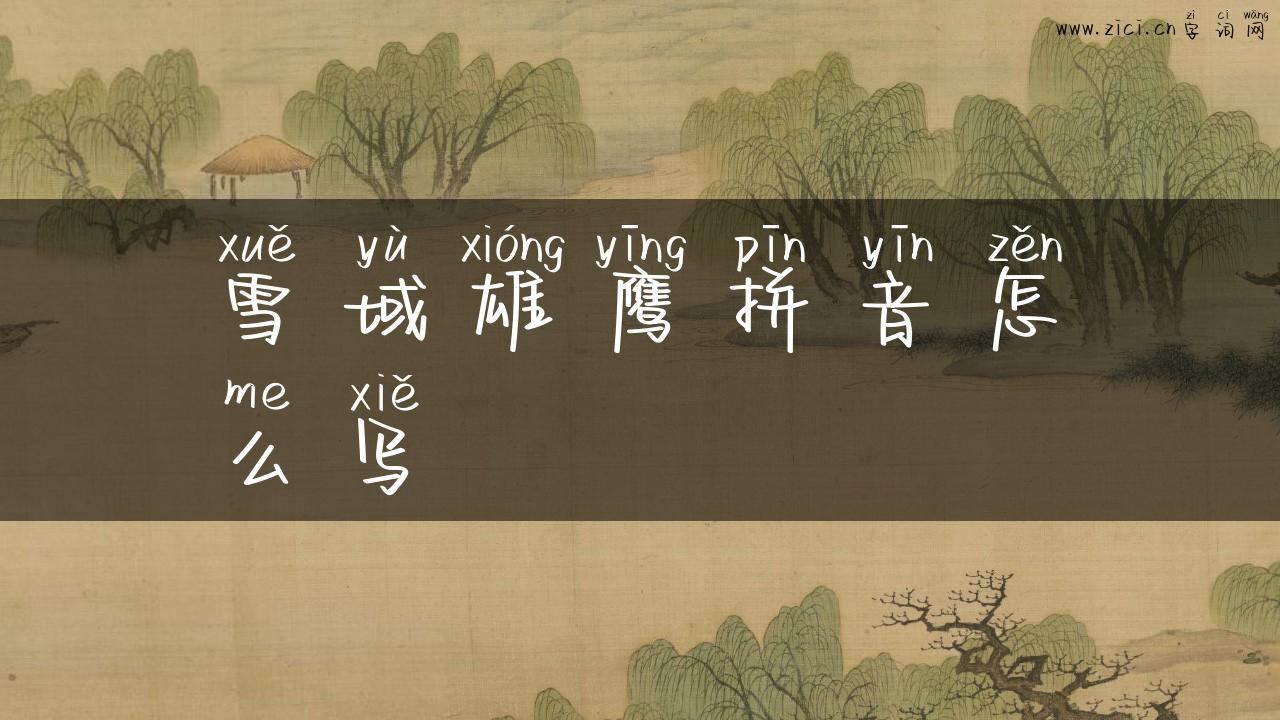 zì cí wǎng
www.zici.cn 字词网
xuě yù xióng yīng pīn yīn zěn
雪域雄鹰拼音怎
me xiě
么写